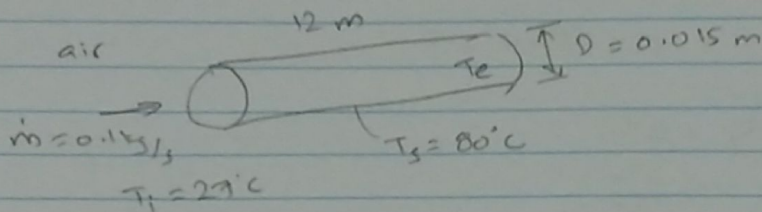 12 m
air
Te
D = 0.015 m
ṁ = 0.1 kg/s
Ts = 80°C
Ti = 27°C